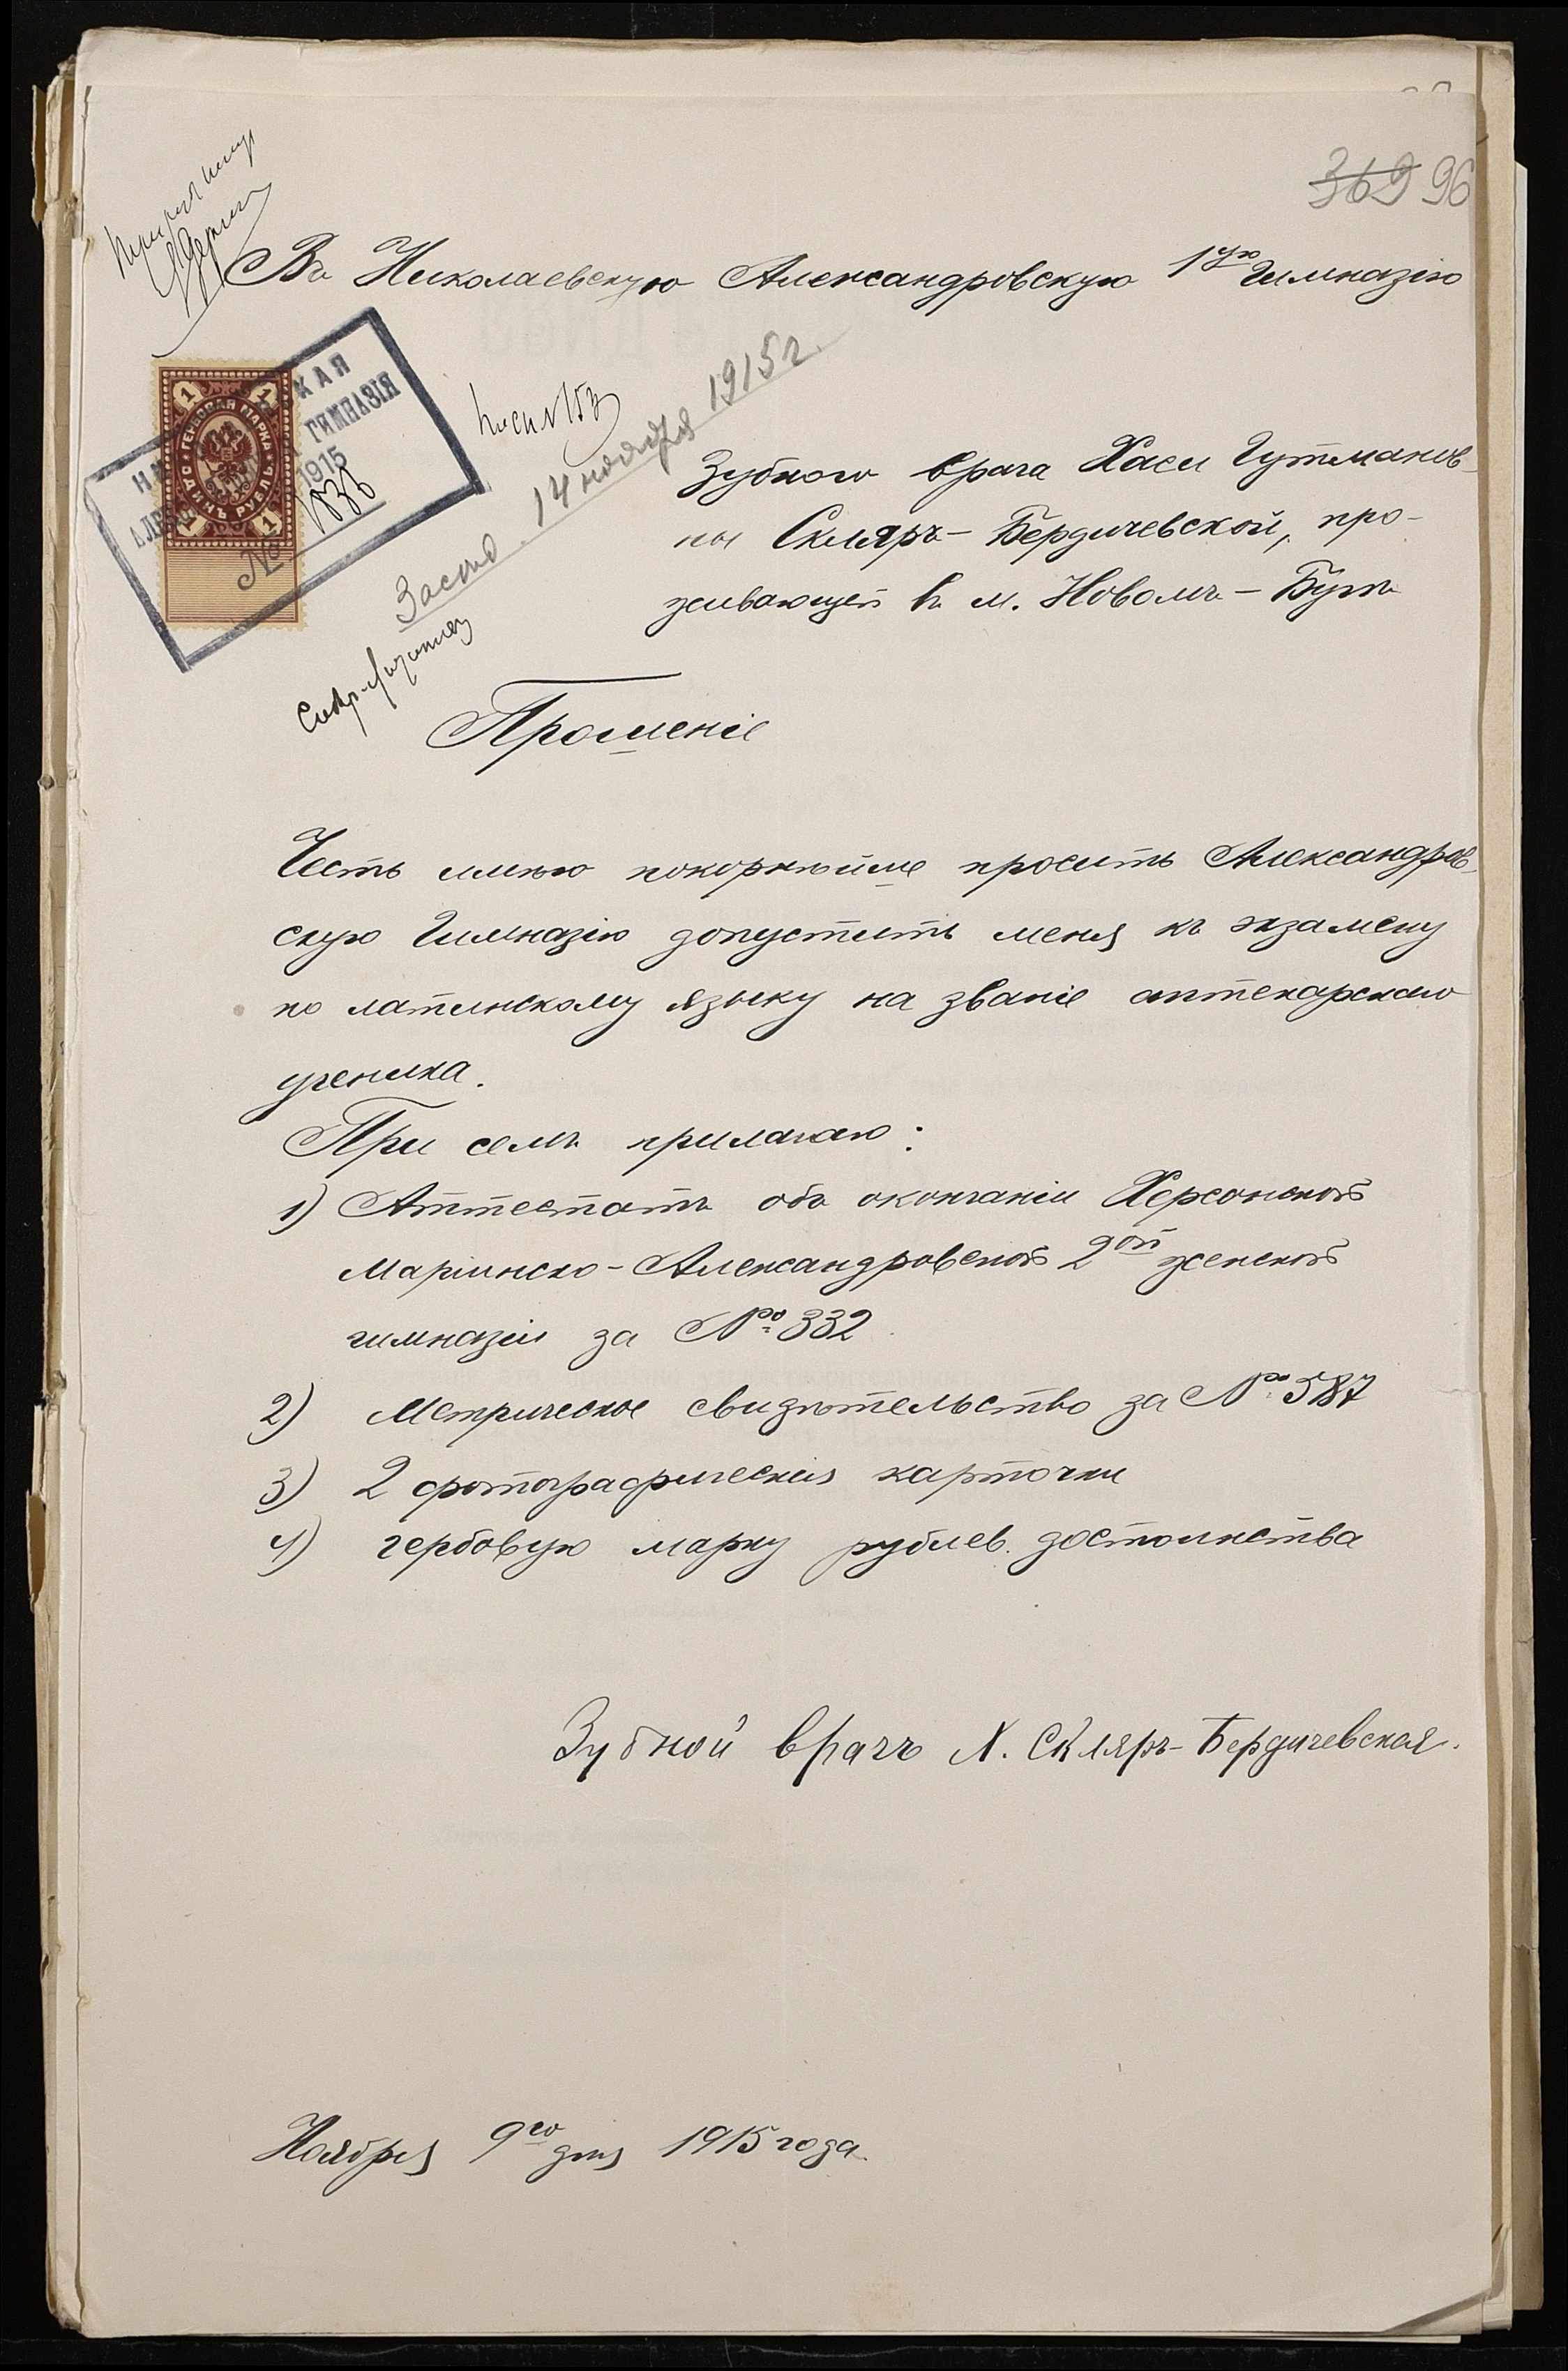 369 96
Въ Николаевскую Александровскую 1ую Гимназію
1 1
ГЕРБОВАЯ МАРКА
ОДИНЪ РУБЛЬ
1 1
КАЯ
ГИМНАЗІЯ
1915
№
Засѣд. 14 ноября 1915 г.
Зубного врача Хаси Гутманов-
ны Скляръ-Бердичевской, про-
живающей въ м. Новомъ-Бугѣ
Прошеніе
Честь имѣю покорнѣйше просить Александров-
скую Гимназію допустить меня къ экзамену
по латинскому языку на званіе аптекарскаго
ученика.
При семъ прилагаю:
1) Аттестатъ объ окончаніи Херсонской
Маріинско-Александровской 2ой женской
гимназіи за № 332
2) Метрическое свидѣтельство за № 587
3) 2 фотографическія карточки
4) гербовую марку рублев. достоинства
Зубной врачъ Х. Скляръ-Бердичевская.
Ноября 9го дня 1915 года.